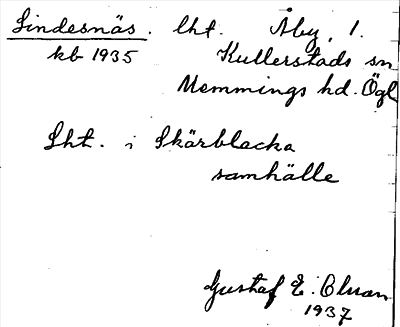 Lindesnäs. lht. Åby, 1.
kb 1935 Kullerstads sn
Memmings hd. Ögl
Lht. i Skärblacka
samhälle
Gustaf E. Olsson
1937